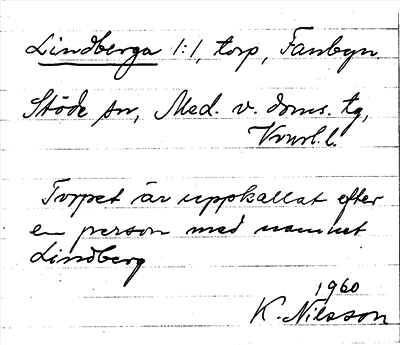 Lindberga 1:1, torp, Fanbyn.
Stöde sn, Med. v. doms. tg,
Vnrl. l.
Torpet är uppkallat efter
en person med namnet
Lindberg
1960
K. Nilsson